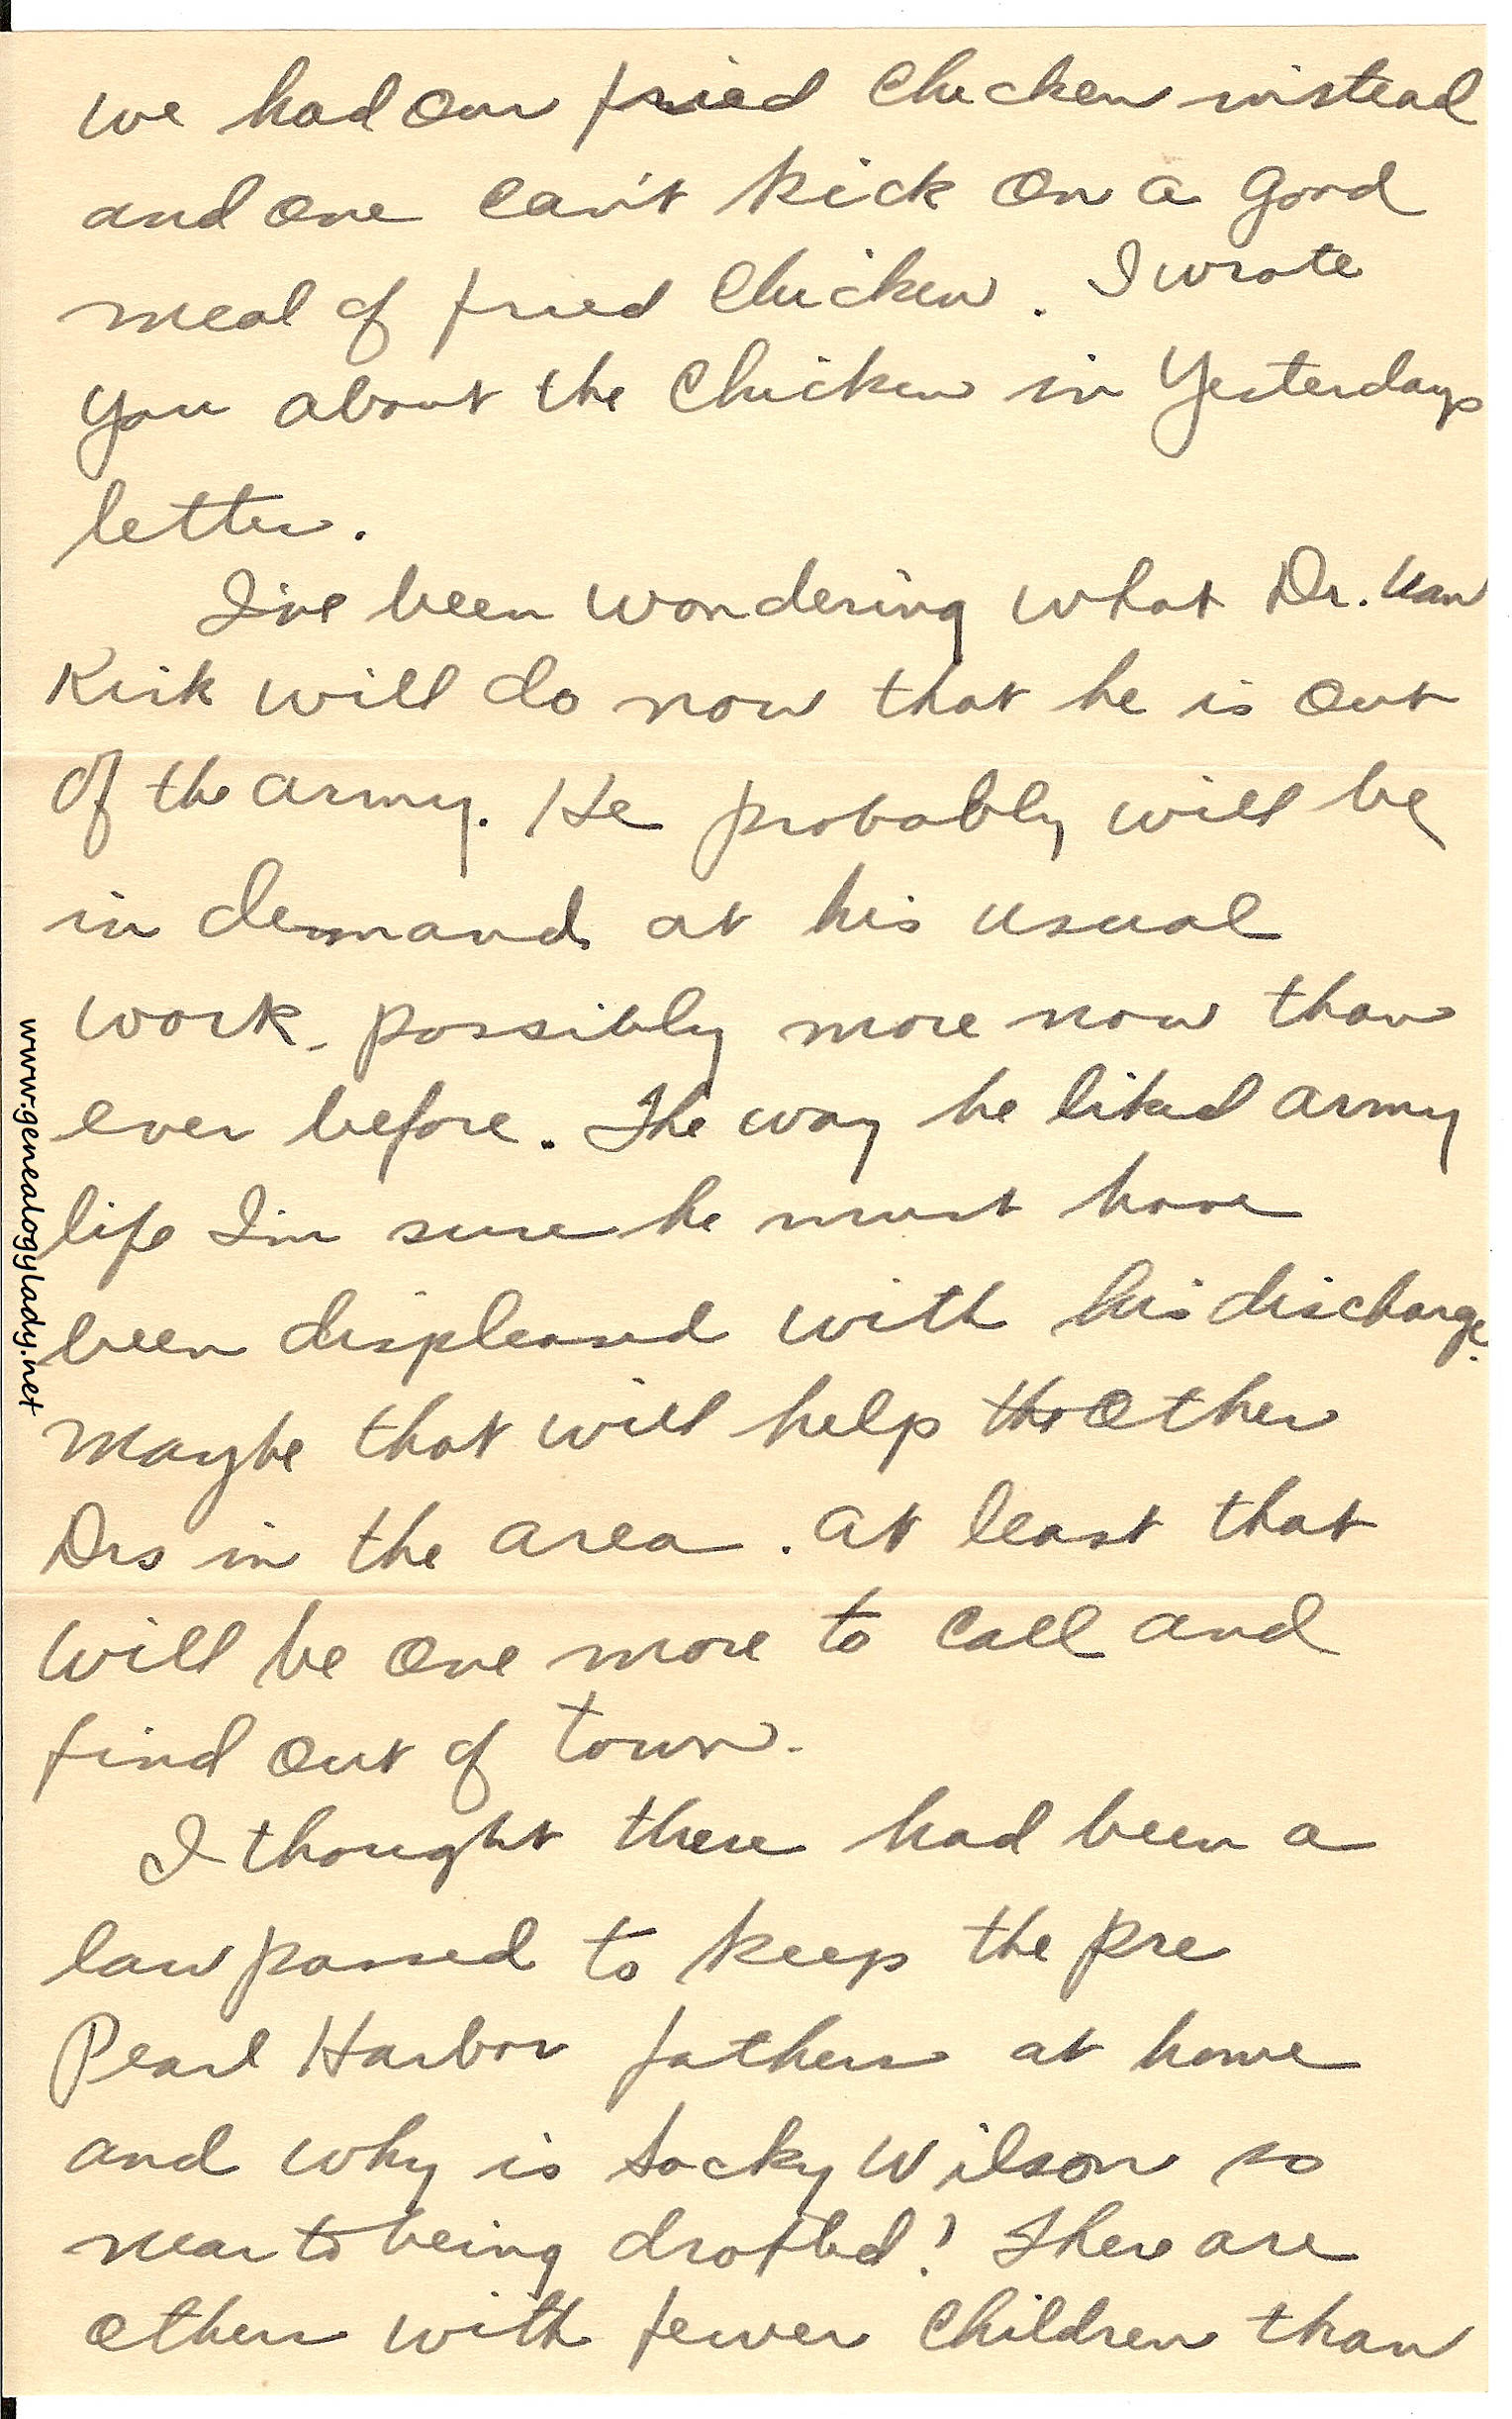 we had our fried chicken instead
and one can't kick on a good
meal of fried chicken. I wrote
you about the chicken in yesterdays
letter.
I've been wondering what Dr. Van
Kirk will do now that he is out
of the army. He probably will be
in demand at his usual
work - possibly more now than
ever before. The way he liked army
life I'm sure he must have
been displeased with his discharge.
Maybe that will help the other
Drs in the area. At least that
will be one more to call and
find out of town.
I thought there had been a
law passed to keep the pre
Pearl Harbor fathers at home
and why is Socky Wilson so
near to being drafted? There are
others with fewer children than
www.genealogylady.net